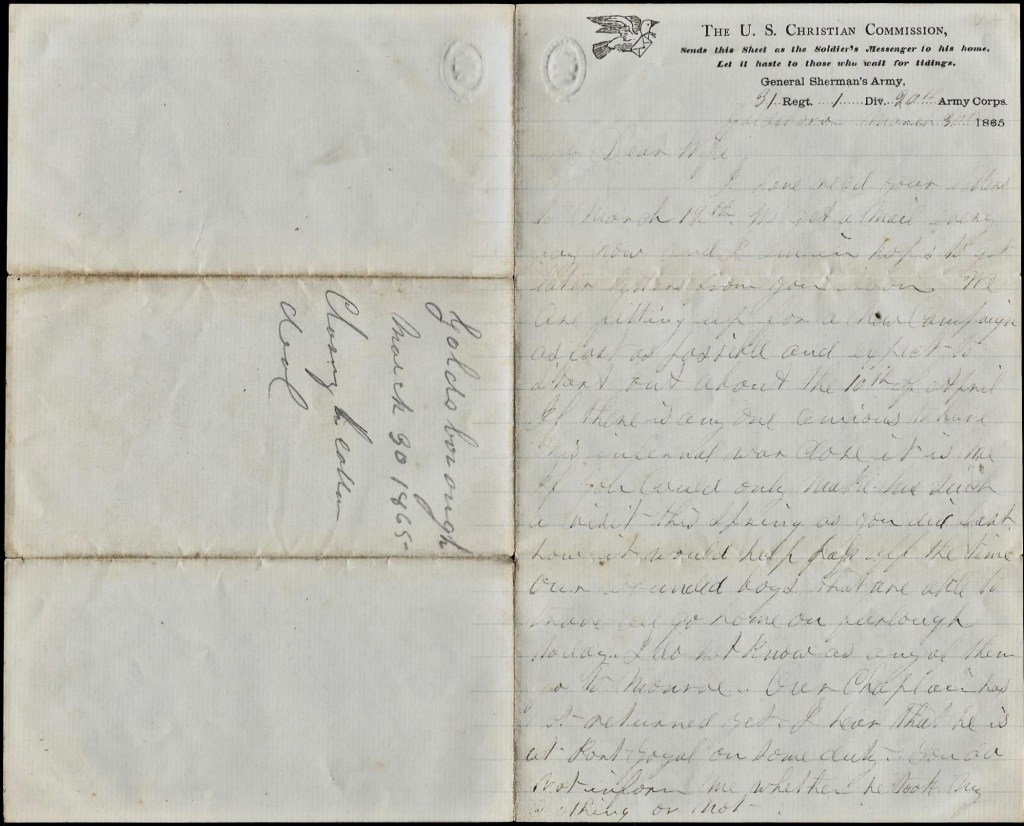 Goldsborough
March 30 1865-
deal
THE U. S. CHRISTIAN COMMISSION,
Sends this Sheet as the Soldier's Messenger to his home.
Let it haste to those who wait for tidings.
General Sherman's Army,
31 Regt. 1 Div. 20th Army Corps.
March 30 1865
Dear Wife
I have recd your letters
to March 19th. We get a Mail every
day now and I am in hopes to get
later letters from you soon. We
are fitting up for a new Campaign
as fast as possible and expect to
start out about the 10th of April
If there is any one anxious to have
this infernal war close it is me
If you could only make me such
a visit this Spring as you did last
how it would help pass off the time.
Our wounded boys that are able to
travel all go home on furlough
today. I do not know as any of them
go to Monroe. Our Chaplain has
not returned yet. I hear that he is
at Port Royal on some duty. You do
not inform me whether he took my
clothing or not.